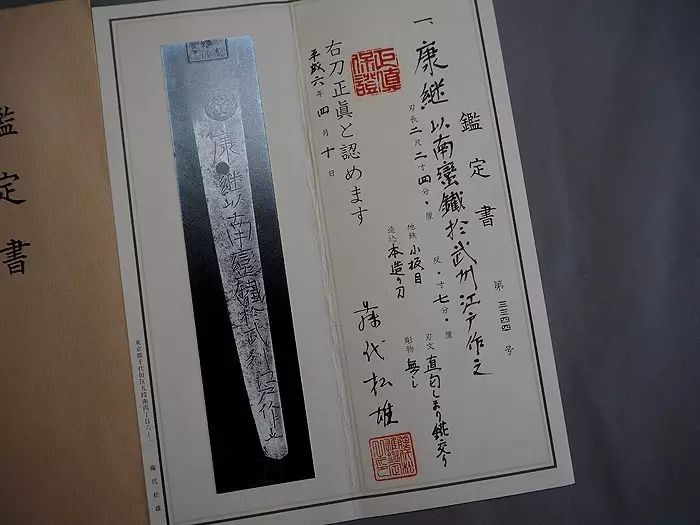 鑑定書
鑑定書
第三三四四号
一、康継以南蛮鐵於武州江戸作之
刃長 二尺二寸四分・厘
反・寸七分・厘
地鉄 小板目
刃文 直匂しまり銚交り
造込 本造り刀
彫物 無し
右刀正眞と認めます
平成六年四月十日
藤代松雄
正眞保證
康継以南蛮鐵於武州江戸作之
東京都千代田区九段南四丁目六ー一 藤代松雄